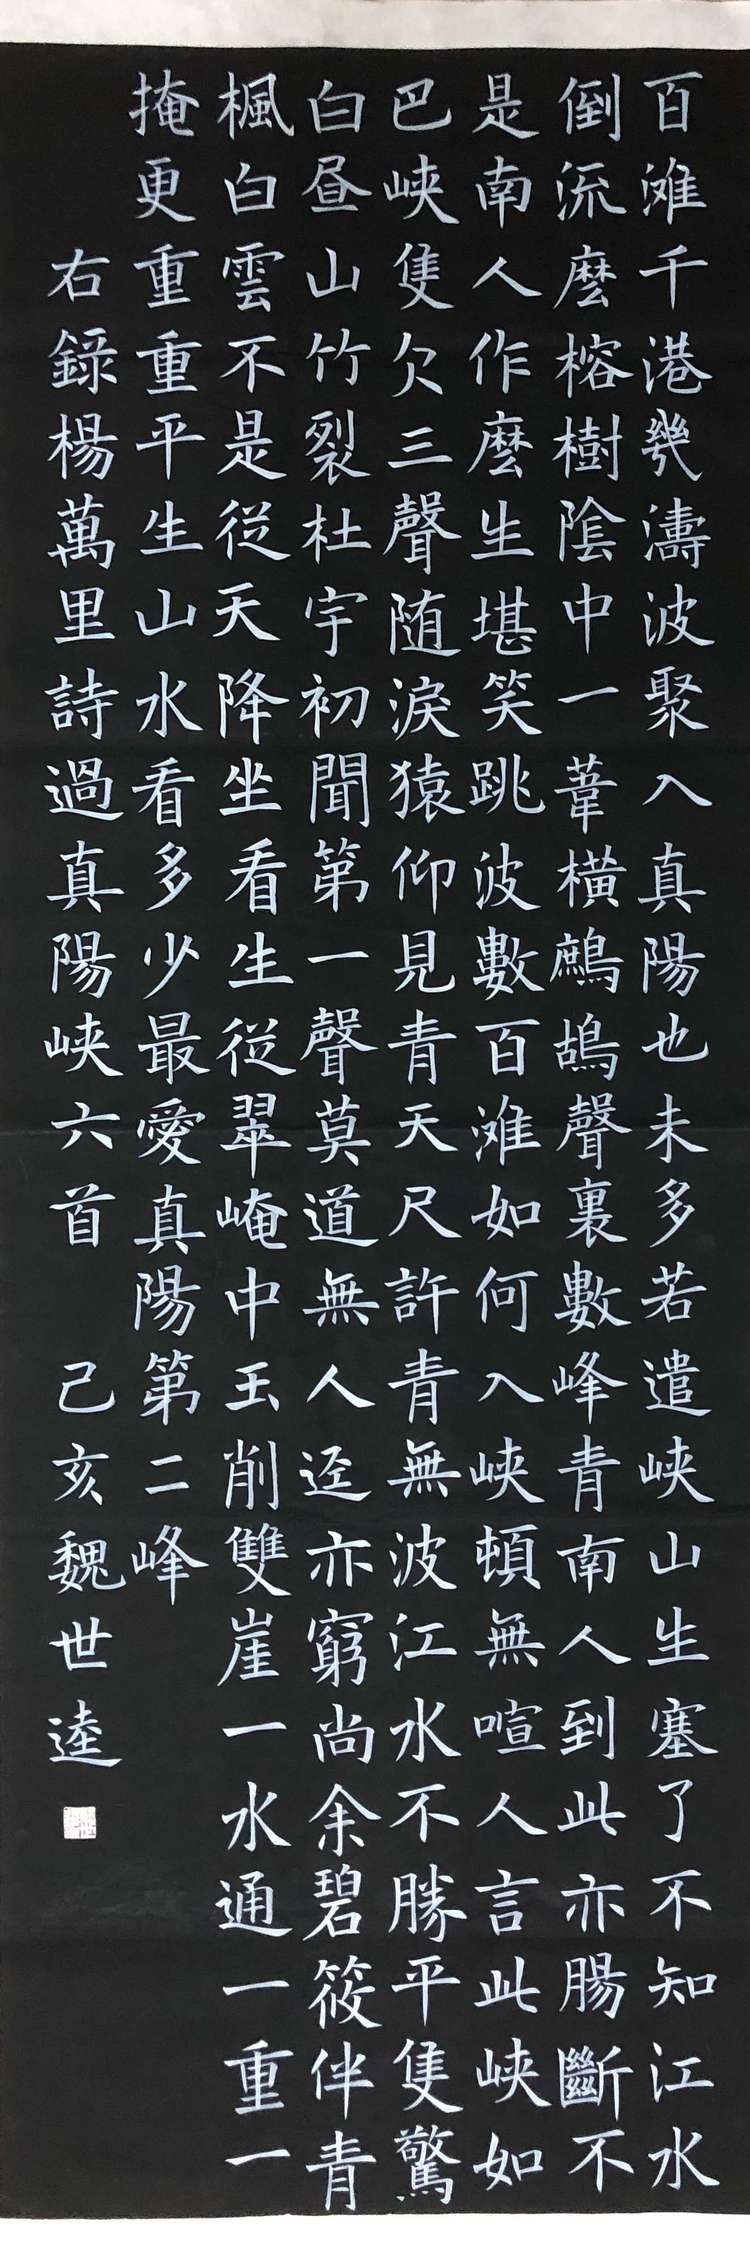 百滩千港幾濤波聚入真陽也未多若遣峡山生塞了不知江水
倒流麽榕樹陰中一葦横鷓鴣聲裏數峰青南人到此亦腸斷不
是南人作麽生堪笑跳波數百滩如何入峡頓無喧人言此峡如
巴峡隻欠三聲随淚猿仰見青天尺許青無波江水不勝平隻驚
白昼山竹裂杜宇初聞第一聲莫道無人迳亦窮尚余碧筱伴青
楓白雲不是従天降坐看生従翠崦中玉削雙崖一水通一重一
掩更重重平生山水看多少最愛真陽第二峰
右録楊萬里詩過真陽峡六首 己亥魏世逵